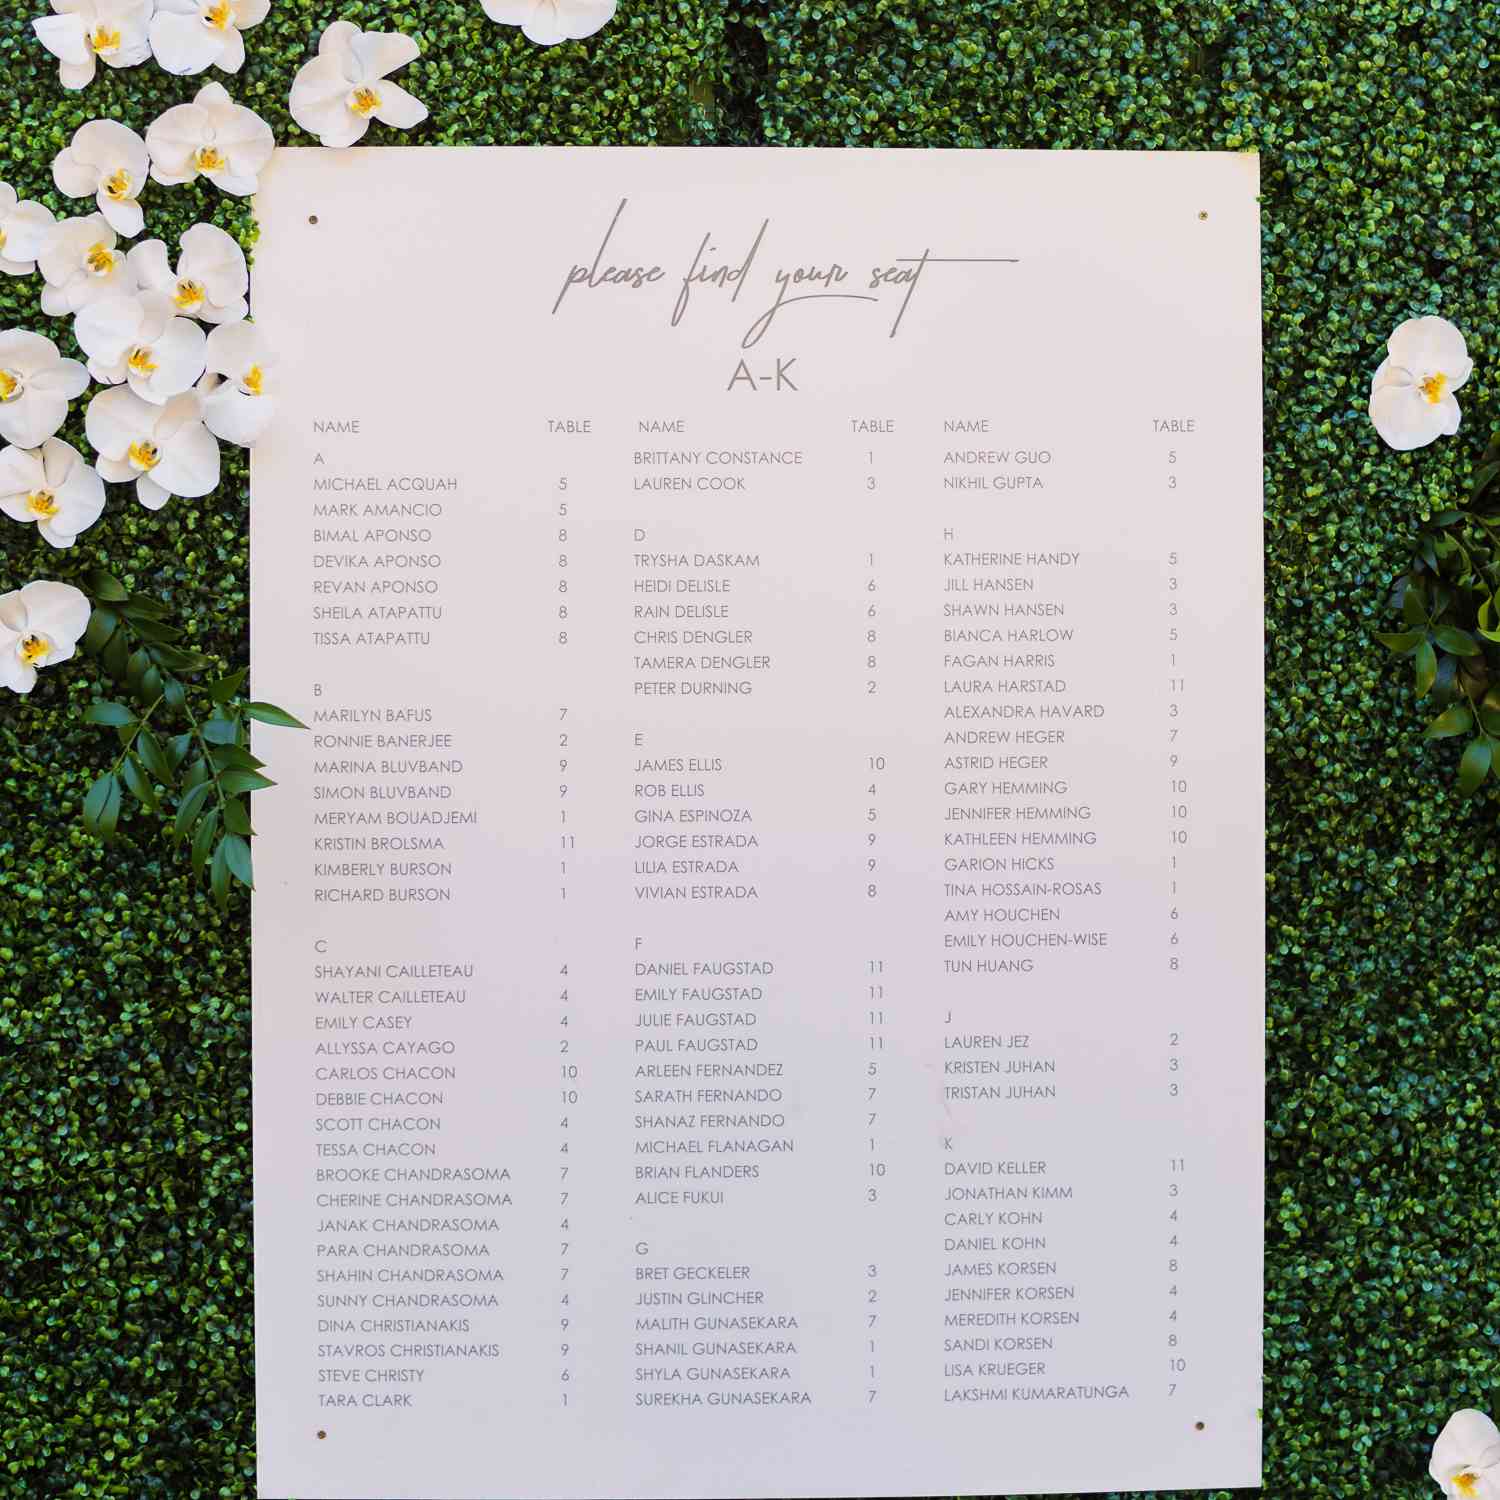 please find your seat
A-K
NAME TABLE
A
MICHAEL ACQUAH 5
MARK AMANCIO 5
BIMAL APONSO 8
DEVIKA APONSO 8
REVAN APONSO 8
SHEILA ATAPATTU 8
TISSA ATAPATTU 8
B
MARILYN BAFUS 7
RONNIE BANERJEE 2
MARINA BLUVBAND 9
SIMON BLUVBAND 9
MERYAM BOUADJEMI 1
KRISTIN BROLSMA 11
KIMBERLY BURSON 1
RICHARD BURSON 1
C
SHAYANI CAILLETEAU 4
WALTER CAILLETEAU 4
EMILY CASEY 4
ALLYSSA CAYAGO 2
CARLOS CHACON 10
DEBBIE CHACON 10
SCOTT CHACON 4
TESSA CHACON 4
BROOKE CHANDRASOMA 7
CHERINE CHANDRASOMA 7
JANAK CHANDRASOMA 4
PARA CHANDRASOMA 7
SHAHIN CHANDRASOMA 7
SUNNY CHANDRASOMA 4
DINA CHRISTIANAKIS 9
STAVROS CHRISTIANAKIS 9
STEVE CHRISTY 6
TARA CLARK 1
NAME TABLE
BRITTANY CONSTANCE 1
LAUREN COOK 3
D
TRYSHA DASKAM 1
HEIDI DELISLE 6
RAIN DELISLE 6
CHRIS DENGLER 8
TAMERA DENGLER 8
PETER DURNING 2
E
JAMES ELLIS 10
ROB ELLIS 4
GINA ESPINOZA 5
JORGE ESTRADA 9
LILIA ESTRADA 9
VIVIAN ESTRADA 8
F
DANIEL FAUGSTAD 11
EMILY FAUGSTAD 11
JULIE FAUGSTAD 11
PAUL FAUGSTAD 11
ARLEEN FERNANDEZ 5
SARATH FERNANDO 7
SHANAZ FERNANDO 7
MICHAEL FLANAGAN 1
BRIAN FLANDERS 10
ALICE FUKUI 3
G
BRET GECKELER 3
JUSTIN GLINCHER 2
MALITH GUNASEKARA 7
SHANIL GUNASEKARA 1
SHYLA GUNASEKARA 1
SUREKHA GUNASEKARA 7
NAME TABLE
ANDREW GUO 5
NIKHIL GUPTA 3
H
KATHERINE HANDY 5
JILL HANSEN 3
SHAWN HANSEN 3
BIANCA HARLOW 5
FAGAN HARRIS 1
LAURA HARSTAD 11
ALEXANDRA HAVARD 3
ANDREW HEGER 7
ASTRID HEGER 9
GARY HEMMING 10
JENNIFER HEMMING 10
KATHLEEN HEMMING 10
GARION HICKS 1
TINA HOSSAIN-ROSAS 1
AMY HOUCHEN 6
EMILY HOUCHEN-WISE 6
TUN HUANG 8
J
LAUREN JEZ 2
KRISTEN JUHAN 3
TRISTAN JUHAN 3
K
DAVID KELLER 11
JONATHAN KIMM 3
CARLY KOHN 4
DANIEL KOHN 4
JAMES KORSEN 8
JENNIFER KORSEN 4
MEREDITH KORSEN 4
SANDI KORSEN 8
LISA KRUEGER 10
LAKSHMI KUMARATUNGA 7